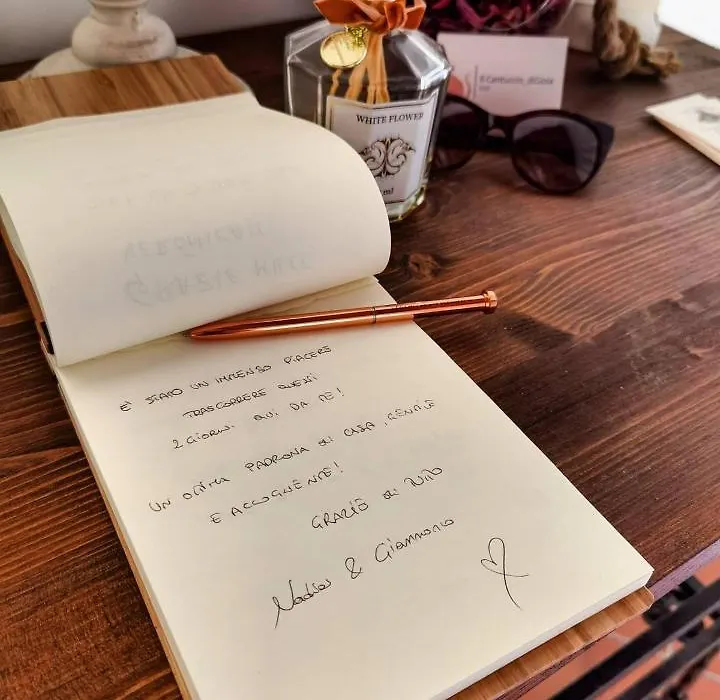 WHITE FLOWER
ml
È STATO UN IMMENSO PIACERE
TRASCORRERE QUESTI
2 GIORNI QUI DA TE!
UN OTTIMA PADRONA DI CASA, GENTILE
E ACCOGLIENTE!
GRAZIE DI TUTTO
Nadia & Gianmarco